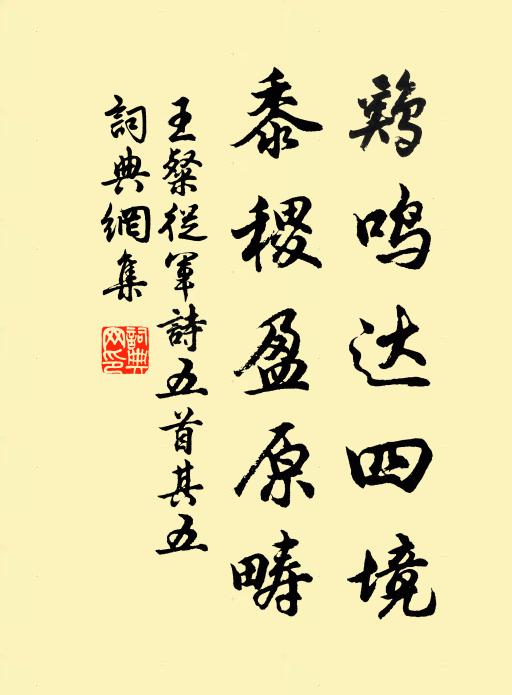 鷄鸣达四境
黍稷盈原畴
王粲從軍詩五首其五
詞典網集
詞典网印